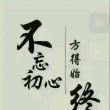 不忘初心
方得始
终